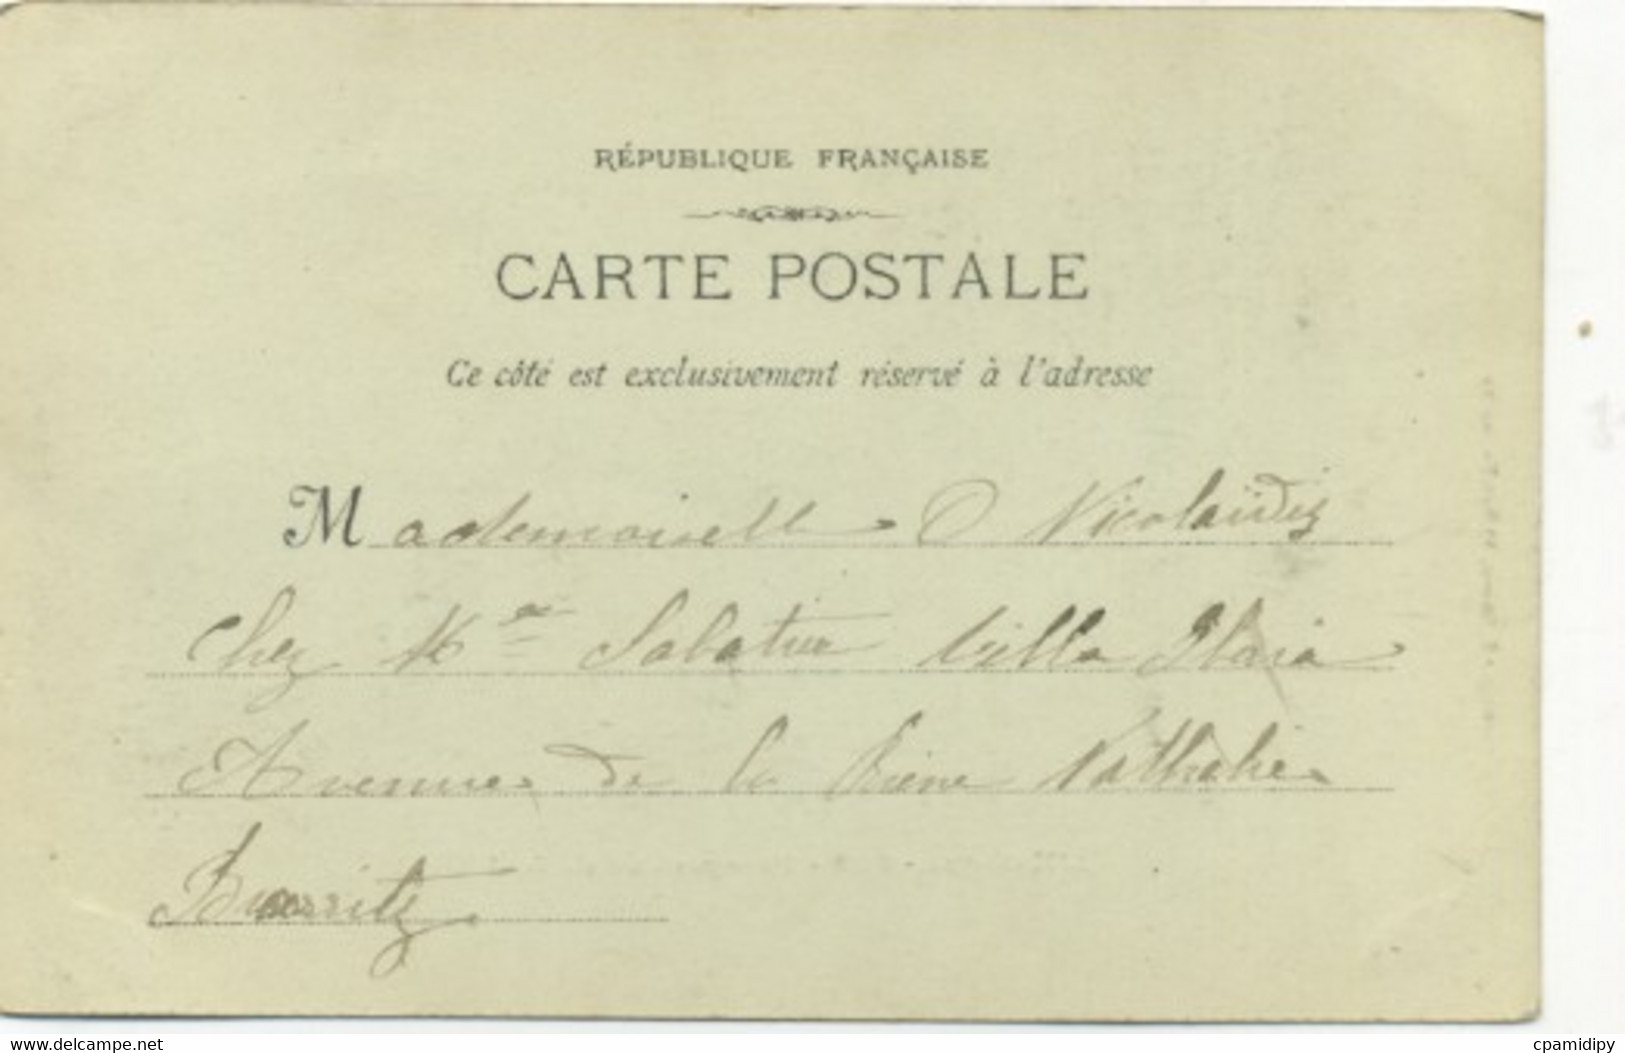 RÉPUBLIQUE FRANÇAISE
CARTE POSTALE
Ce côté est exclusivement réservé à l'adresse
Mademoiselle O Nicolaïdis
Chez Mme Sabatier Villa
Avenue de la Reine Nathalie
Biarritz
www.delcampe.net
cpamidipy